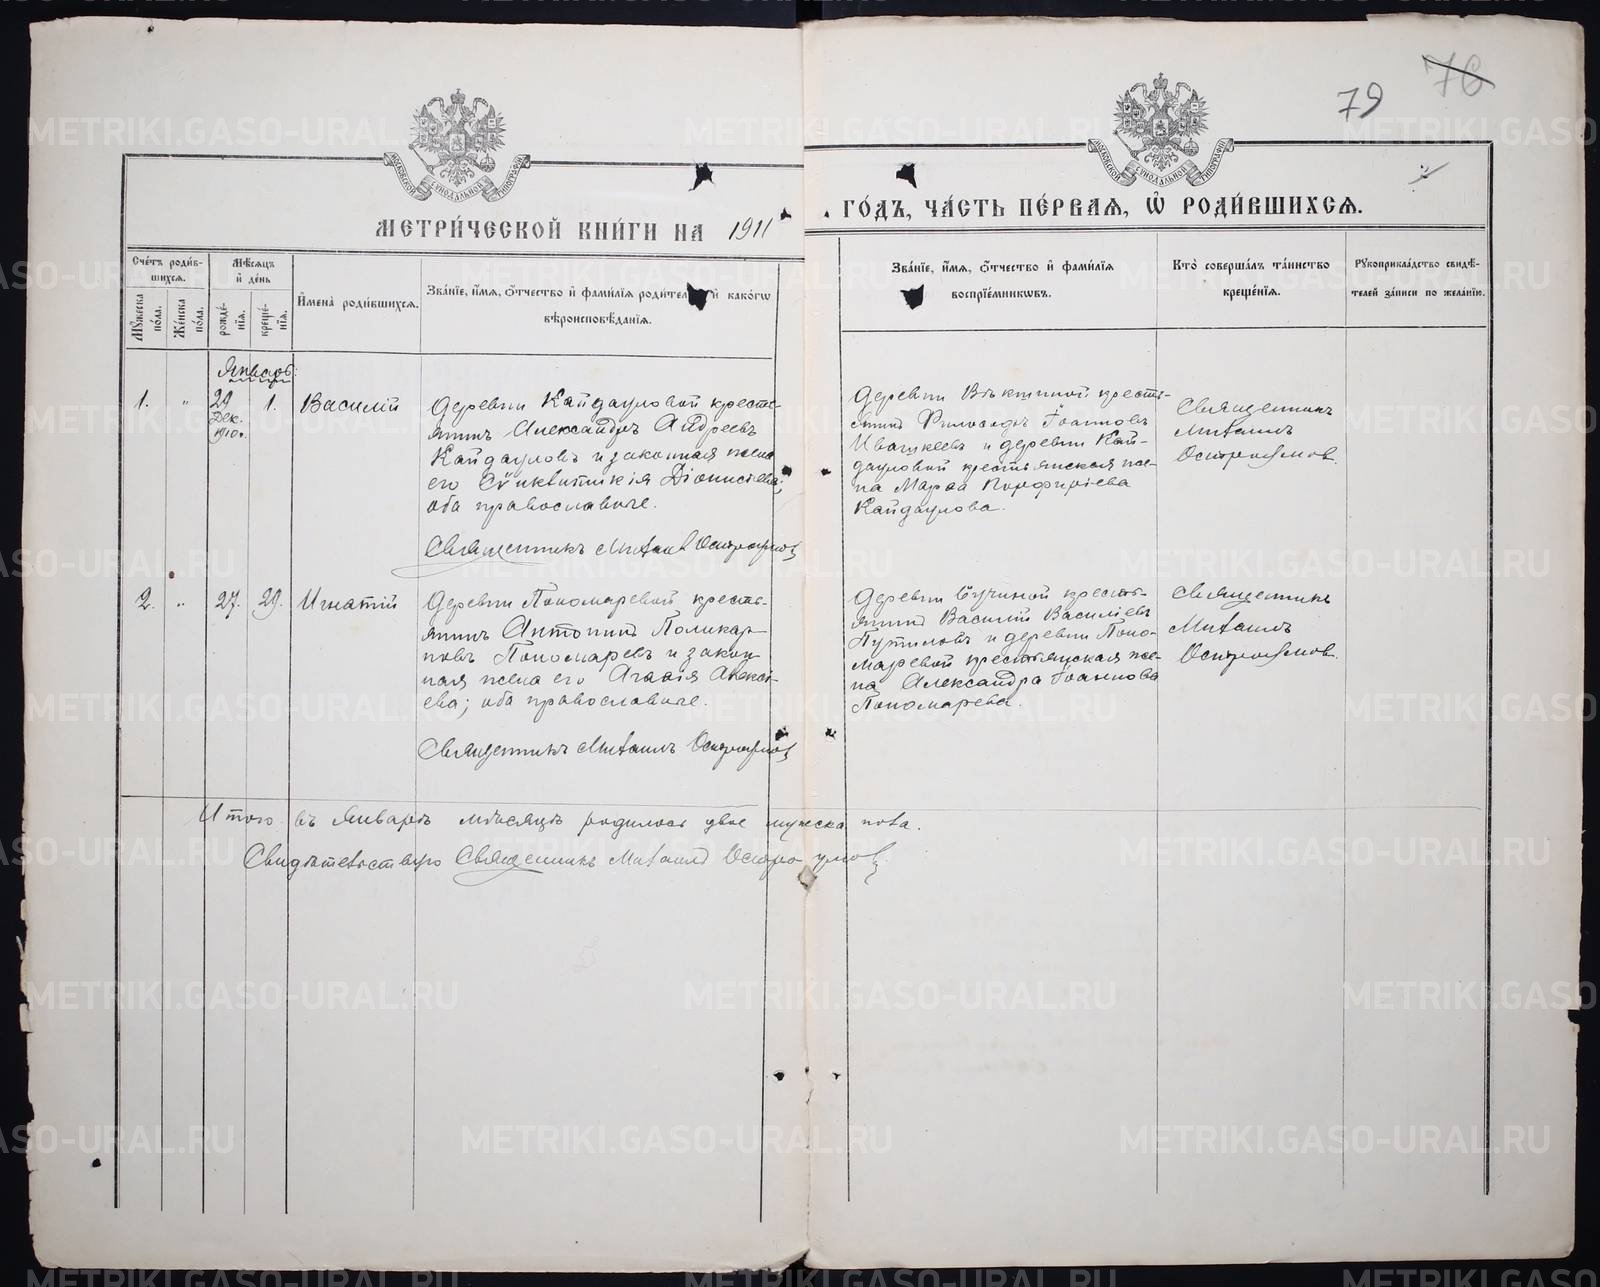 76
79
МЕТРИ́ЧЕСКОЙ КНИ́ГИ НА 1911 ГО́ДЪ, ЧА́СТЬ ПЕ́РВАЯ, Ѡ РОДИ́ВШИХСЯ.
Сче́тъ роди́в-
шихся.
Му́жеска по́ла.
Же́нска по́ла.
Мѣ́сяцъ
и де́нь
рожде́-
нїя.
креще́-
нїя.
И́мена роди́вшихся.
Зва́нїе, и́мя, о́тчество и фами́лїя роди́телей и како́гѡ
вѣроисповѣ́данїя.
Зва́нїе, и́мя, о́тчество и фами́лїя
воспрїе́мниковъ.
Кто̀ соверша́лъ та́инство
креще́нїя.
Рукоприкла́дство свидѣ́-
телей за́писи по жела́нїю.
Январь:
1. " 29 Дек. 1910г. 1. Василій
Деревни Кайдауловой кресть-
янинъ Александръ Андреевъ
Кайдауловъ и законная жена
его Діонисіева;
оба православные.
Священникъ Михаилъ Остроумовъ
Деревни кресть-
янинъ Іоанновъ
Ивашкеевъ и деревни Кай-
дауловой крестьянская же-
на Марѳа Порфиріева
Кайдаулова.
Священникъ
Михаилъ
Остроумов.
2. " 27. 29. Игнатій
Деревни Пономаревой кресть-
янинъ Антонинъ Поликар-
повъ Пономаревъ и закон-
ная жена его Агаѳія Алексі-
ева; оба православные.
Священникъ Михаилъ Остроумовъ
Деревни кресть-
янинъ Василій Василіевъ
Путиловъ и деревни Поно-
маревой крестьянская же-
на Александра Іоаннова
Пономарева.
Священникъ
Михаилъ
Остроумов.
Итого въ Январѣ мѣсяцѣ родилось двое мужеска пола.
Свидѣтельствую Священникъ Михаилъ Остроумовъ